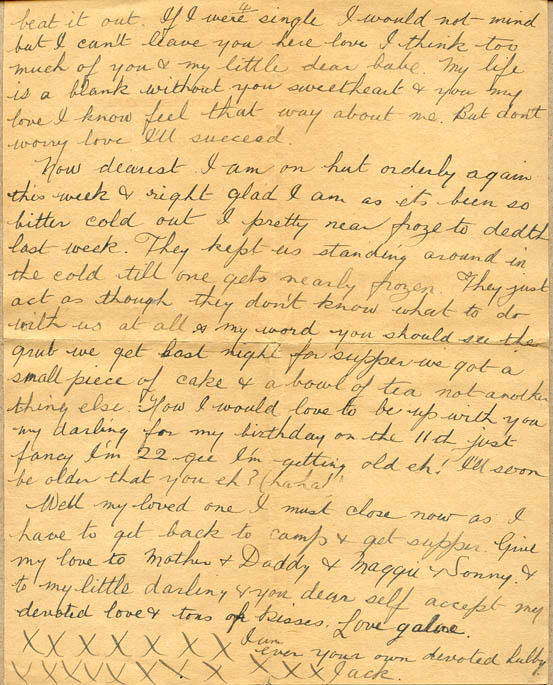 4
beat it out. If I were single I would not mind
but I can't leave you here love I think too
much of you & my little dear babe. My life
is a blank without you sweetheart & you my
love I know feel that way about me. But don't
worry love I'll succeed.
Now dearest I am on hut orderly again
this week & right glad I am as its been so
bitter cold out I pretty near froze to dedth
last week. They kept us standing around in
the cold till one gets nearly frozen. They just
act as though they don't know what to do
with us at all & my word you should see the
grub we get last night for supper we got a
small piece of cake & a bowl of tea not another
thing else. How I would love to be up with you
my darling for my birthday on the 11th just
fancy I'm 22 gee I'm getting old eh! I'll soon
be older that you eh? (haha!
Well my loved one I must close now as I
have to get back to camp & get supper. Give
my love to Mother & Daddy & Maggie & Sonny. &
to my little darling & you dear self accept my
devoted love & tons of kisses. Love galore.
X X X X X X X X I am
ever your own devoted hubby
X X X X X X X X X X X Jack.